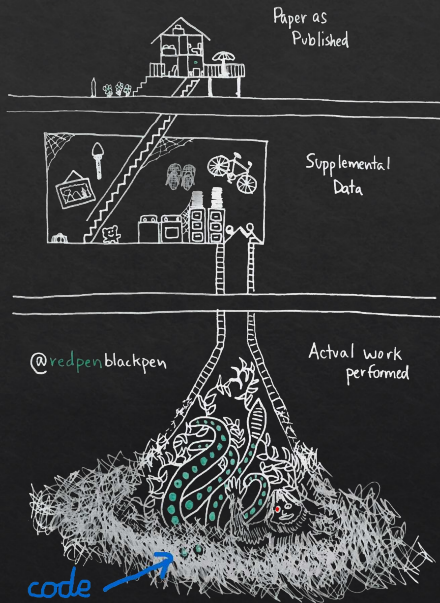 Paper as
Published
Supplemental
Data
@redpenblackpen
Actual work
performed
code